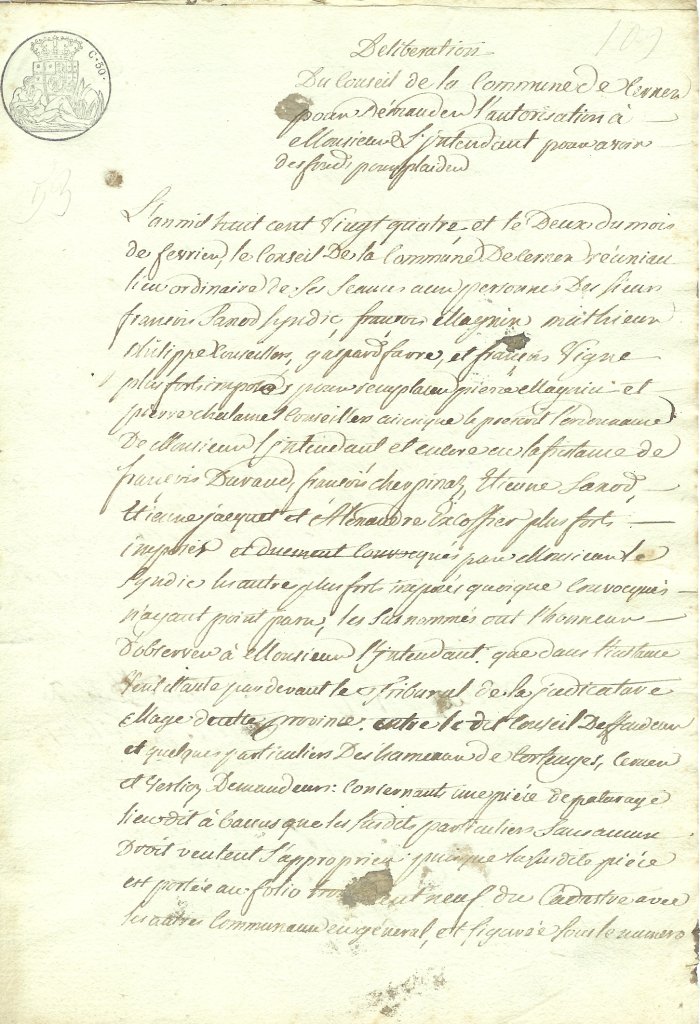 C. 50.
109
Deliberation
Du Conseil de la Commune de Cerner
pour demander l'autorisation à
Monsieur L'jntendant pour avoir
des fonds pour plaider
L'an mil huit cent vingt quatre et le Deux du mois
de fevrier, le Conseil De la Commune De Cerner réuni au
lieu ordinaire de ses seances aux personnes Des sieurs
francois Sanod syndic, francois Magnin mathieux
Philippe Conseillers, gaspard favre, et francois Vigne
plus forts imposés pour remplacer pierre Magnin et
pierre chalamel Conseillers ainsi que le prescrit l'ordonnance
De Monsieur L'jntendant et encore en la presence de
francois Durand, francois cherpinaz, Etienne Sanod
Etienne jacquet et Alexandre Excoffier plus forts
imposés et duement Convoqués par Monsieur le
Syndic les autre plus fort imposés quoique Convocqués
n'ayant point paru, les susnommés ont l'honneur
D'observer à Monsieur L'jntendant que dans l'instance
par devant le Tribunal de la judicature
Mage de cette province entre le dit Conseil Deffendeur
et quelques particuliers Des hameaux de Corbusges, Cerner
et Demandeurs: Concernants une piéce de paturage
lieu dit à que les susdits particuliers sans aucun
Droit veulent s'approprier puisque la susdite piéce
est portée au folio cent neuf du Cadastre avec
les autres Communaux en général, et figurée sous le numero